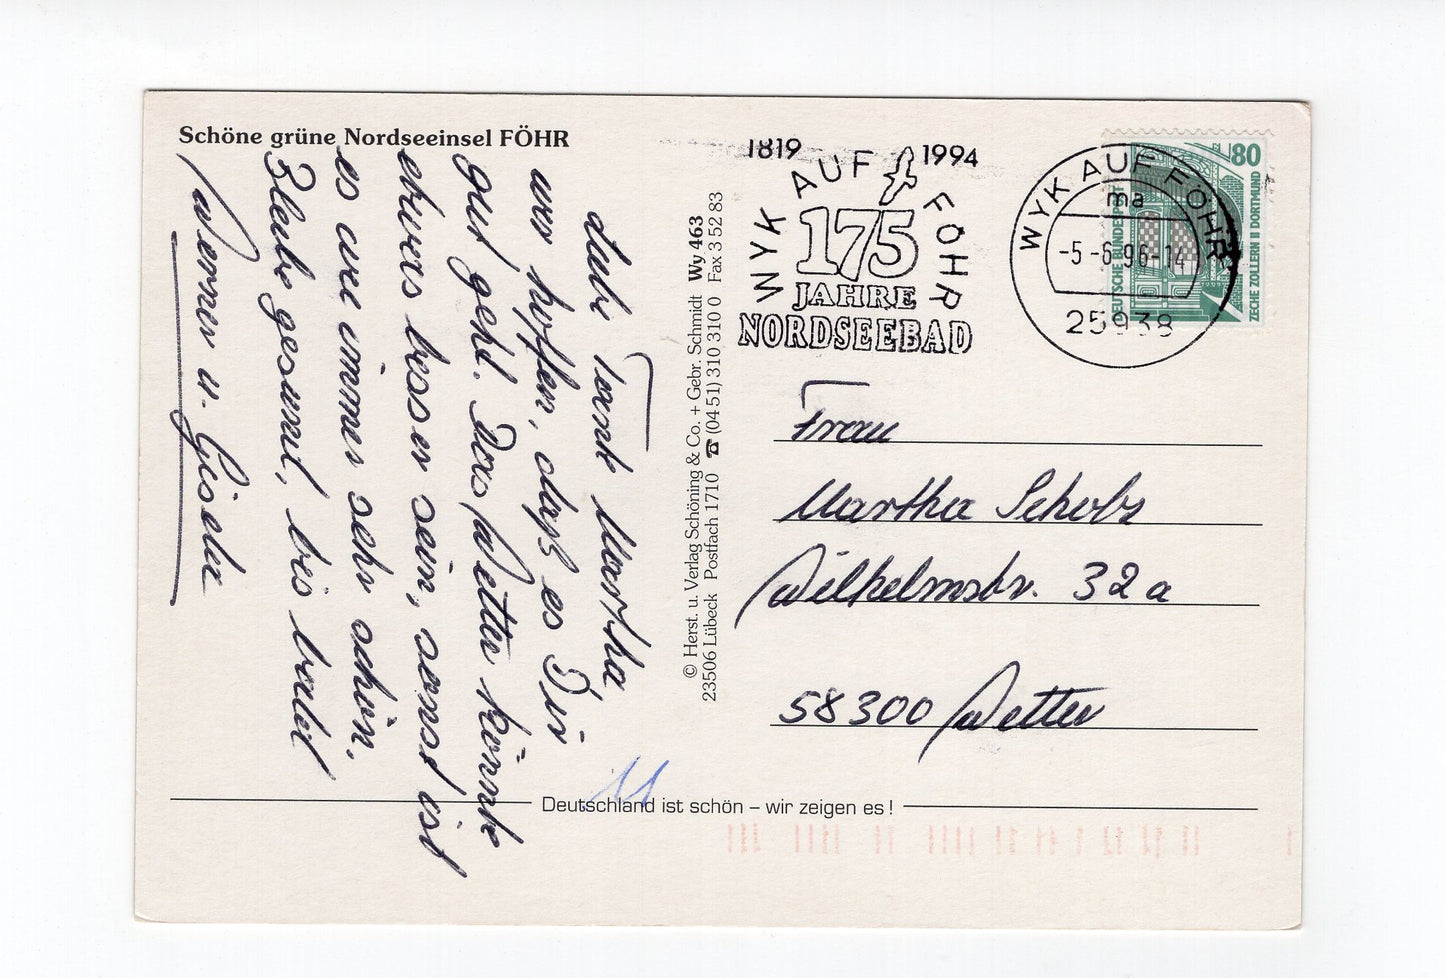 Schöne grüne Nordseeinsel FÖHR
Liebe Tante Martha
wir hoffen, daß es Dir
gut geht. Das Wetter könnte
etwas besser sein, sonst ist
es wie immer sehr schön.
Bleibe gesund, bis bald
Werner u. Gisela
© Herst. u. Verlag Schöning & Co. + Gebr. Schmidt Wy 463
23506 Lübeck Postfach 1710 ☎ (04 51) 310 310 0 Fax 3 52 83
1819 1994
WYK AUF FÖHR
175
JAHRE
NORDSEEBAD
WYK AUF FÖHR
ma
-5.-6.96-14
25938
80
DEUTSCHE BUNDESPOST
ZECHE ZOLLERN II DORTMUND
Frau
Martha Scholz
Wilhelmstr. 32a
58300 Wetter
Deutschland ist schön – wir zeigen es!